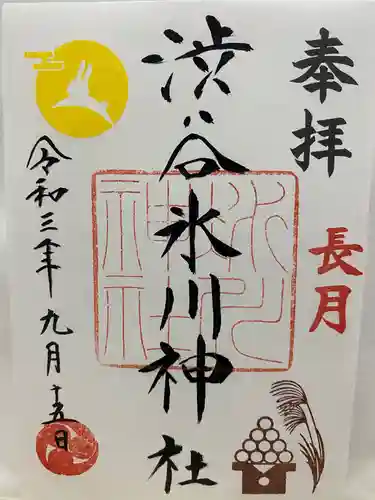 奉拝
長月
渋谷氷川神社
令和三年九月十五日